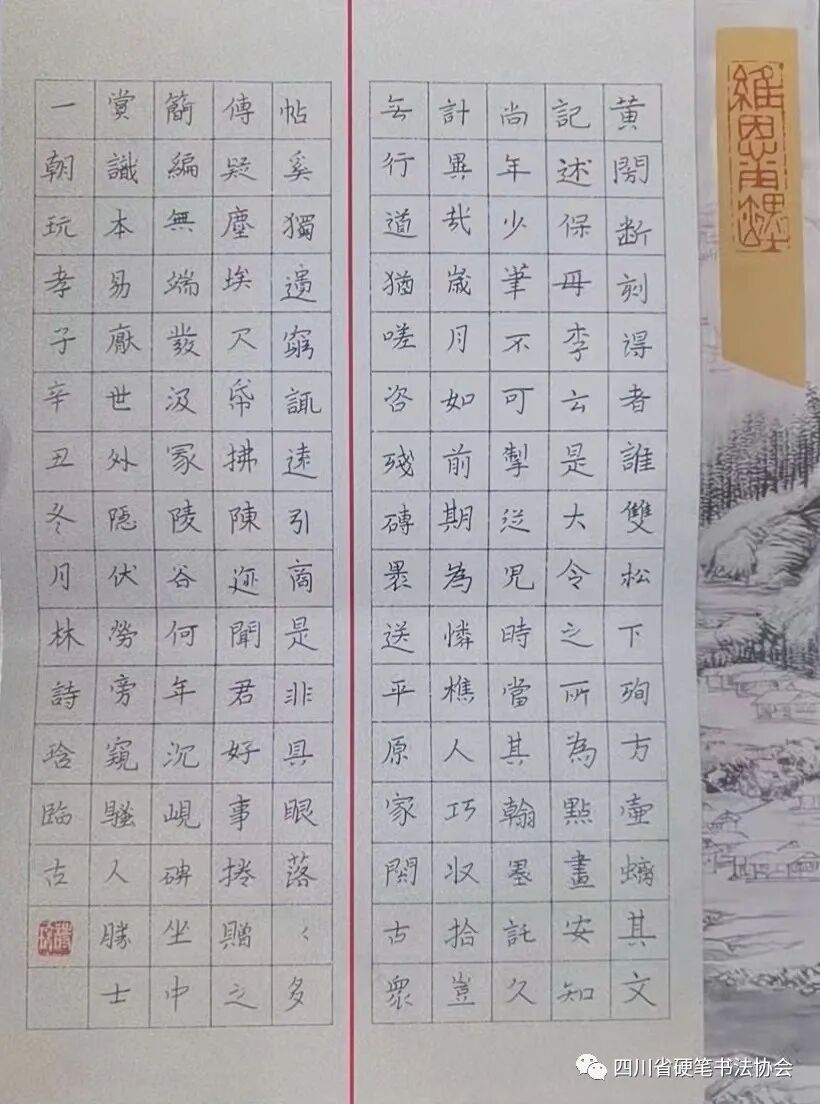 黄閍断刻得者誰雙松下殉方壺螭其文
記述保母李云是大令之所為點畫安知
尚年少筆不可掣従児時當其翰墨託久
計異哉歳月如前期為憐樵人巧収拾豈
行道猶嗟咨殘磚曩送平原家閱古衆
帖奚獨遺窮諏遠引商是非具眼落々多
傳疑塵埃尺帋拂陳迹聞君好事捲贈之
簡編無端發汲冢陵谷何年沉峴碑坐中
賞識本易厭世外隠伏勞旁窺騷人勝士
一朝玩孝子辛丑冬月林詩琀臨古
四川省硬笔书法协会